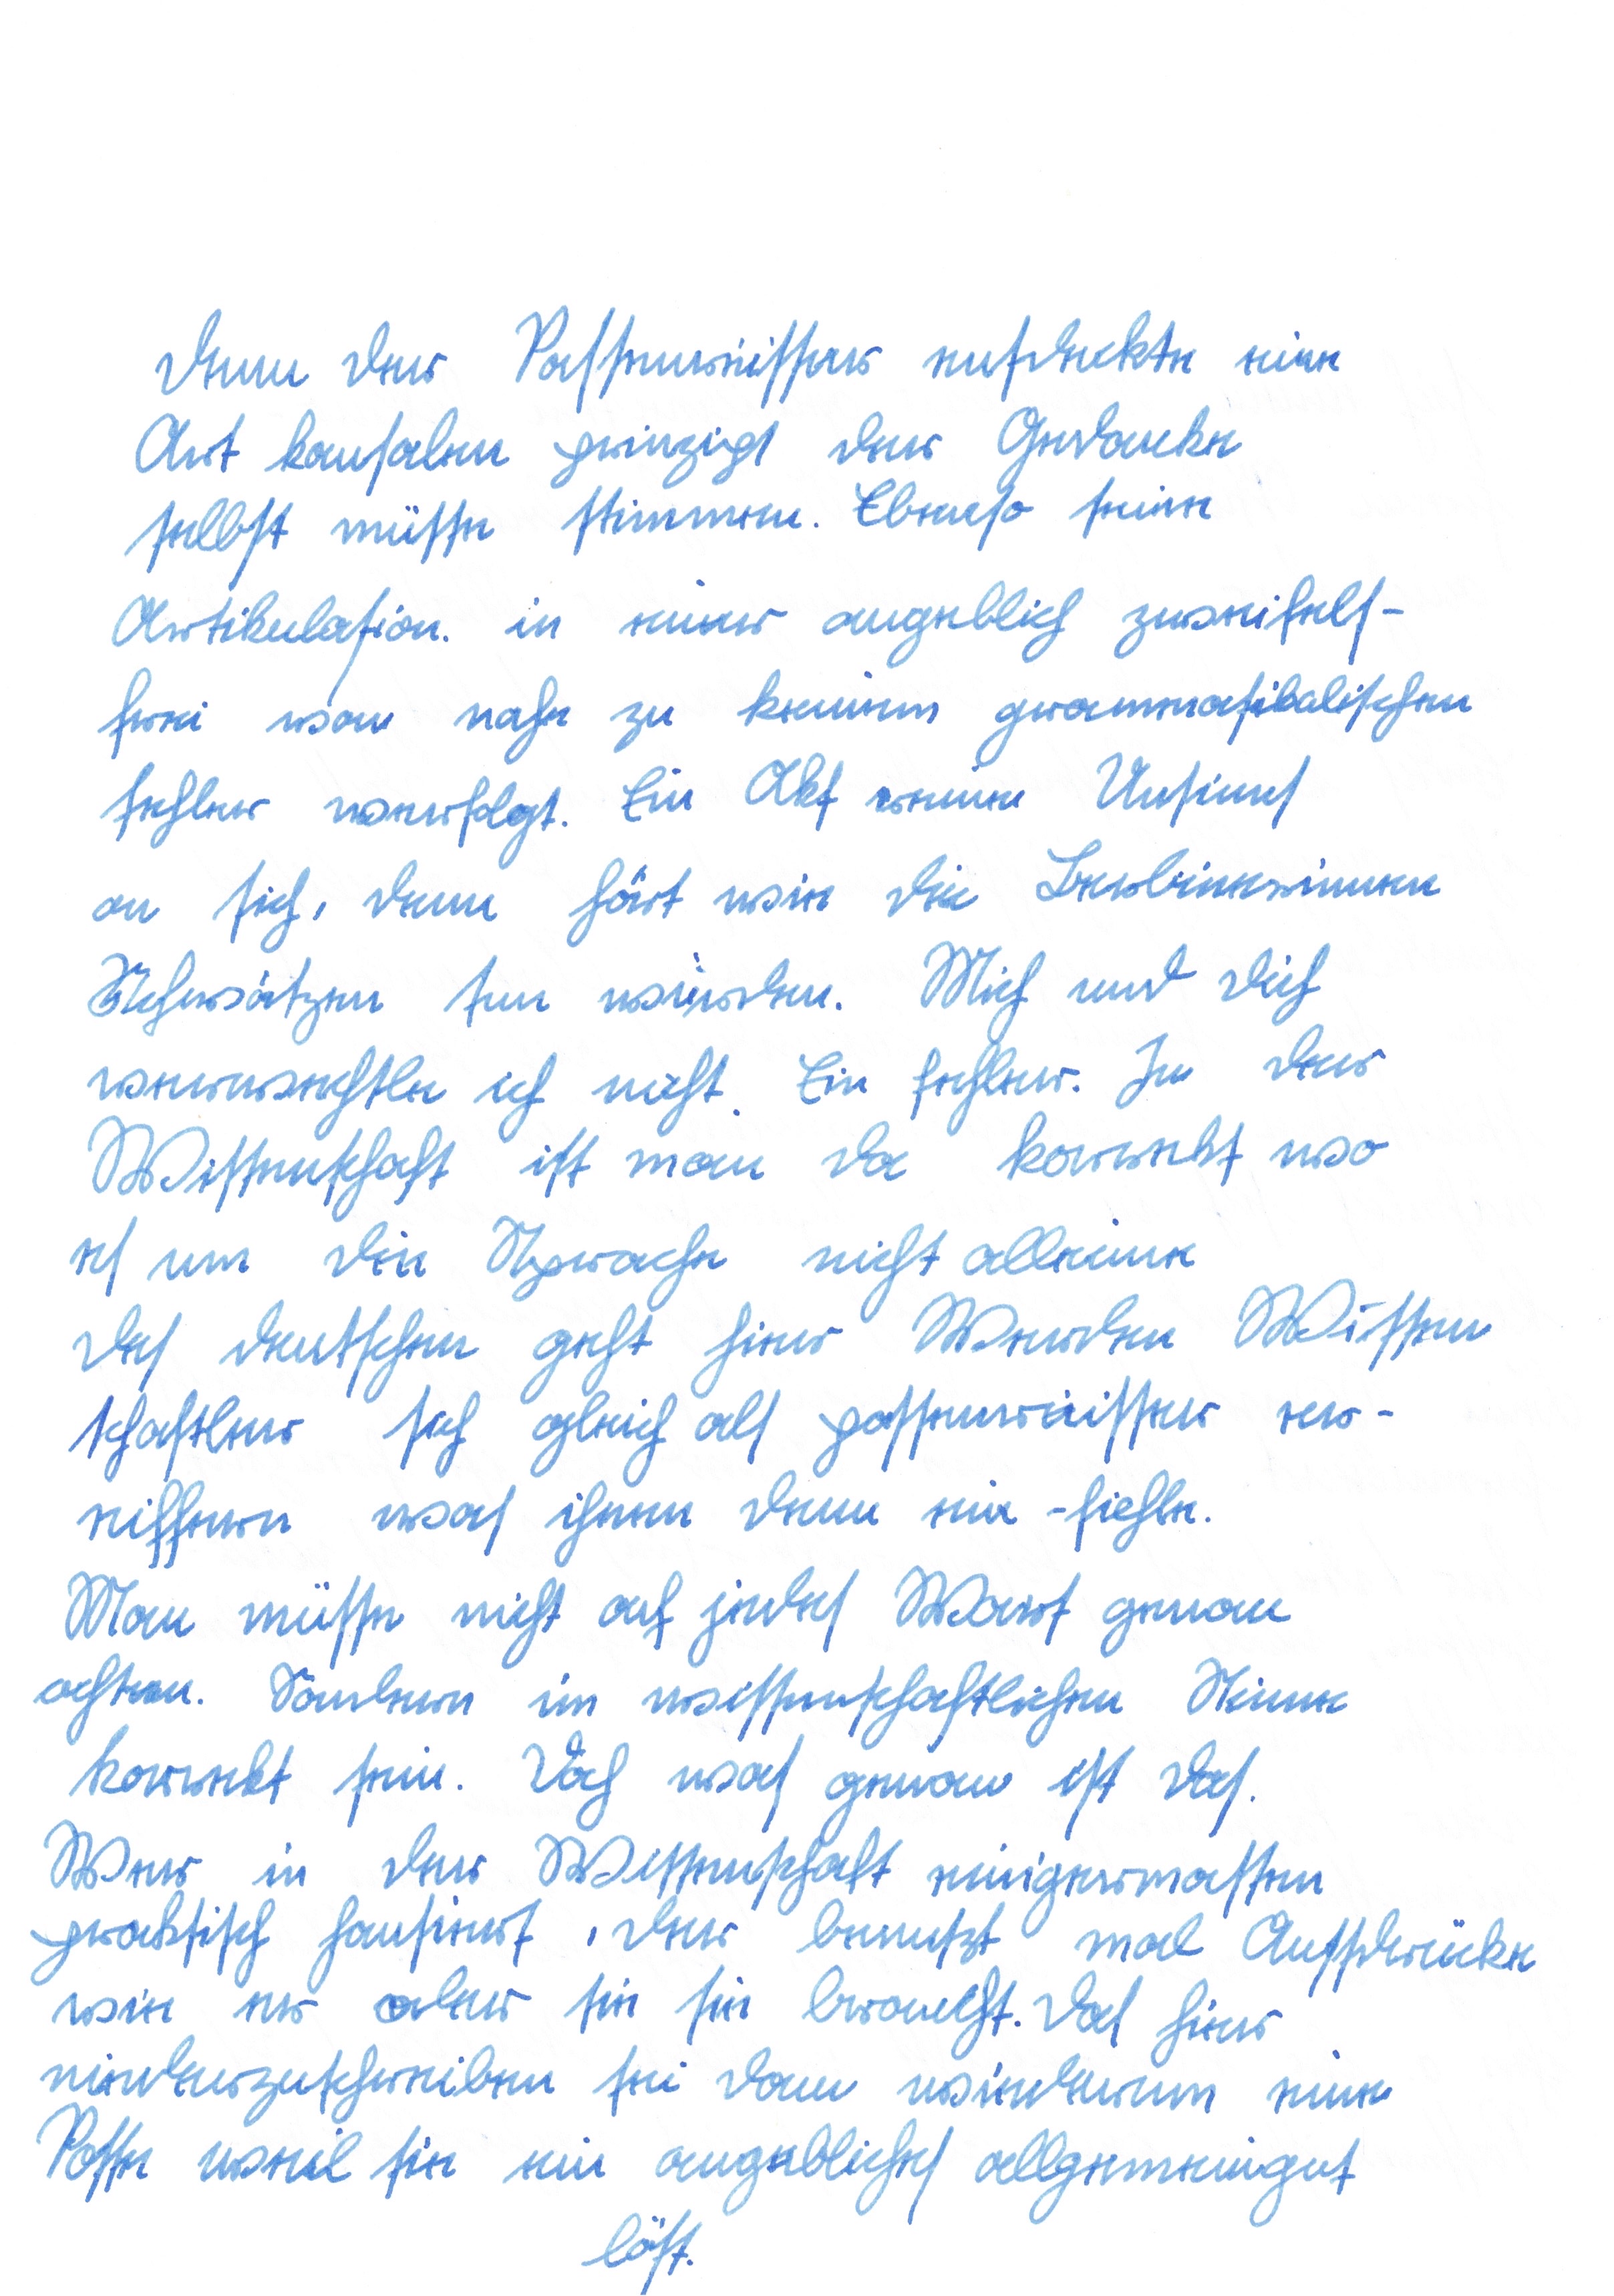 denn der Possenreisser entdeckte eine
Art kausalen prinzips der Gedanke
selbst müsse stimmen. Ebenso seine
Artikulation. in einer angeblich zweifels-
frei von nahe zu keinem grammatikalischen
fehler verfolgt. Ein Akt reinen Unsinns
an sich, denn hört wie die Berlinerinnen
Schwätzen tun würden. Mich und dich
verwechtle ich nicht. Ein fehler. In der
Wissenschaft ist man da korrekt wo
es um die Sprache nicht alleine
des deutschen geht hier Werden Wissen
schaftler sich gleich als possenreisser er-
eiffern was ihnen denn ein-fiehle.
Man müsse nicht auf jedes Wort genau
achten. Sondern im wissenschaftlichen Sinne
korrekt sein. Doch was genau ist das.
Wer in der Wissenschaft einigermassen
praktisch hausiert, der benutzt mal Ausdrücke
wie er oder sie sie braucht. Das hier
niederzuschreiben sei dann wiederum eine
Posse weil sie ein angebliches allgemeingut
löst.